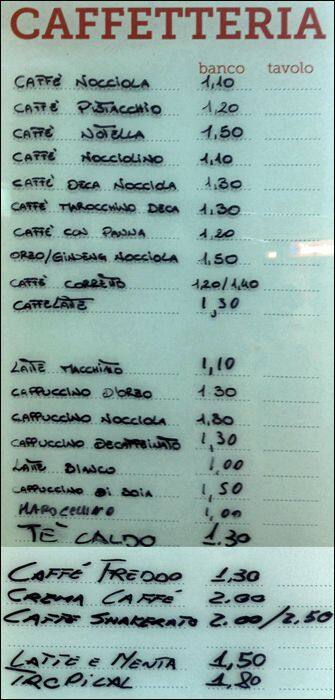 CAFFETTERIA
banco tavolo
CAFFE' NOCCIOLA 1,10
CAFFE' PISTACCHIO 1,20
CAFFE' NOTELLA 1,50
CAFFE' NOCCIOLINO 1,10
CAFFE' DECA NOCCIOLA 1,30
CAFFE' MAROCCHINO DECA 1,30
CAFFE' CON PANNA 1,20
ORZO/GINSENG NOCCIOLA 1,50
CAFFE' CORRETTO 1,20/1,40
CAFFELATTE 1,30
LATTE MACCHIATO 1,10
CAPPUCCINO D'ORZO 1.30
CAPPUCCINO NOCCIOLA 1,30
CAPPUCCINO DECAFFEINATO 1,30
LATTE BIANCO 1,00
CAPPUCCINO DI SOIA 1,50
MAROCCHINO 1,00
TE' CALDO 1.30
CAFFÉ FREDDO 1,30
CREMA CAFFÉ 2.00
CAFFE SHAKERATO 2.00/2,50
LATTE E MENTA 1,50
1.80